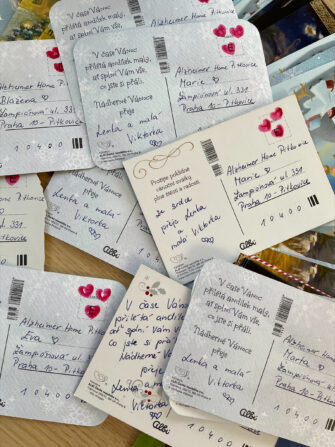 V čase Vánoc
přilétá andílek malý,
ať splní Vám vše,
co jste si přáli.
Nádherné Vánoce
přeje
Lenka a malá
Viktorka
Alzheimer Home Pitkovice
Blažena
Žampiónová ul. 331
Praha 10 - Pitkovice
10400
V čase Vánoc
přilétá andílek malý,
ať splní Vám vše,
co jste si přáli.
Nádherné Vánoce
přeje
Lenka a malá
Viktorka
E
Alzheimer Home Pitkovice
Marie
Žampiónová ul. 331
Praha 10 - Pitkovice
10400
Albi
Nádherné Vánoce
přeje
Lenka a malá
Viktorka
Prožijte poklidné
vánoční svátky
plné štěstí a radosti.
Ze srdce
přeje Lenka
a malá Viktorka
Alzheimer Home Pitkovice
Marie
Žampiónová ul. 331
Praha 10 - Pitkovice
10400
Albi
ul. 331
Pitkovice
10400
E
Alzheimer Home
Eva
Žampiónová ul. 33
Praha 10 - Pitkovice
10400
Albi
V čase Vánoc
přilétá andílek
ať splní vám vše
co jste si přáli
Nádherné
přeje
Lenka a malá
Viktorka
V čase Vánoc
přilétá andílek malý,
ať splní Vám vše,
co jste si přáli.
Nádherné Vánoce
přeje
Lenka a malá
Viktorka
Alzheimer Home
Marta
Žampiónová
Praha 10 - Pitkovice
10400
Albi